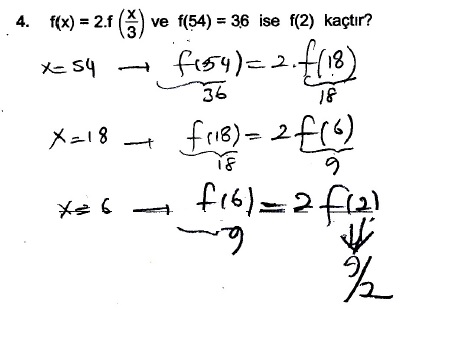 4. f(x) = 2.f (x/3) ve f(54) = 36 ise f(2) kaçtır?
x = 54 → f(54) = 2.f(18)
36 18
x = 18 → f(18) = 2f(6)
18 9
x = 6 → f(6) = 2f(2)
9
9/2